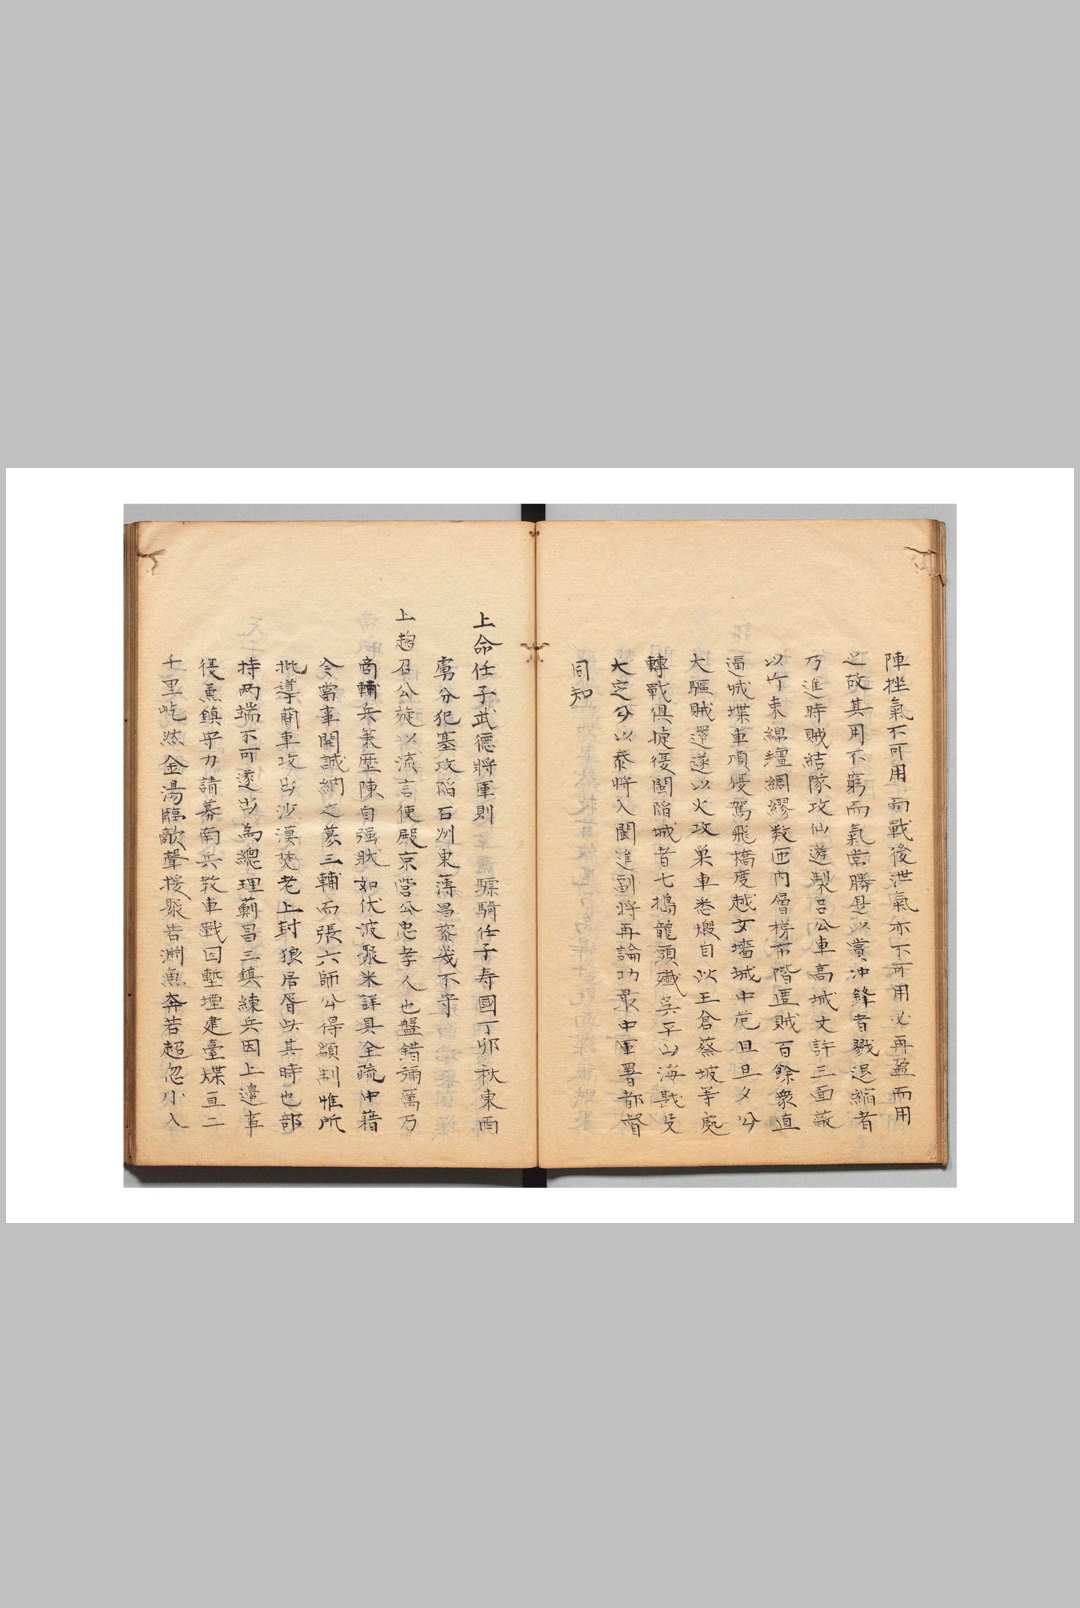 陣挫氣不可用而戰後泄氣亦不可用必再盈而用
之故其用不窮而氣常勝是以賞冲鋒者戮退縮者
乃進時賊結隊攻仙遊製呂公車高城丈許三面蔽
以竹束綿繮綢繆数匝內層梯市階匿賊百餘衆直
逼城堞車頂復駕飛橋度越女墻城中危旦旦夕公
大驅賊還遂以火攻巢車悉煅自此王倉蔡坡等處
轉戰俱捷復閩陷城者七搗龍頭殲吳平山海戡兇
大定公以泰將入閩進副將再論功最中軍署都督
同知
上命任子武德將軍則 驃騎任子寿國丁卯秋東西
虜分犯基攻陷石州東薄昌黎幾不守
上趨召公旋以流言使殿京營公忠孝人也盤錯彌萬乃
商輔兵棄歴陳自强狀如伏波聚米詳具全疏中籍
令當事開誠納之募三輔而張六師公得顓制惟所
批導蕳車攻出沙漠焚老上封狼居胥此其時也部
持两端不可遂出為總理薊昌三鎮練兵因上邉事
復熏鎮乎力請募南兵教車戰囙塹堙建臺煤亘二
千里屹然金湯臨敵聲援聚若渊魚奔若超忽小入